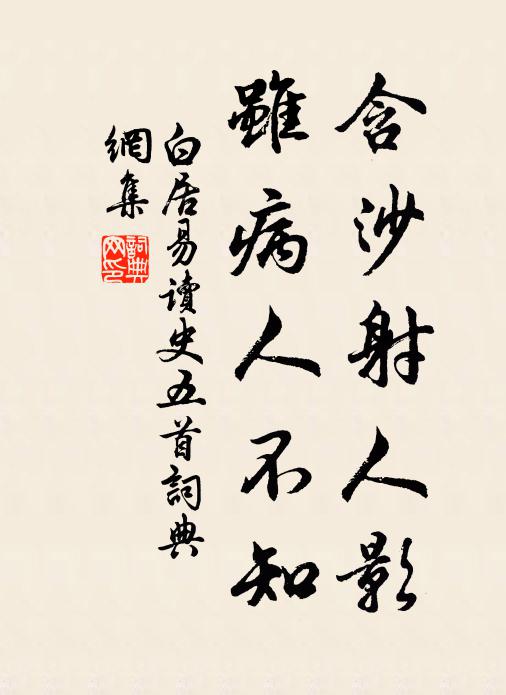 含沙射人影
雖病人不知
白居易讀史五首詞典
網集
詞典
网印